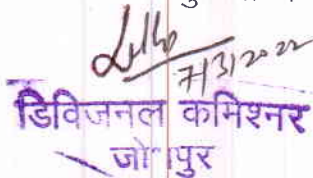 7/3/2022
डिविजनल कमिश्नर
जोधपुर